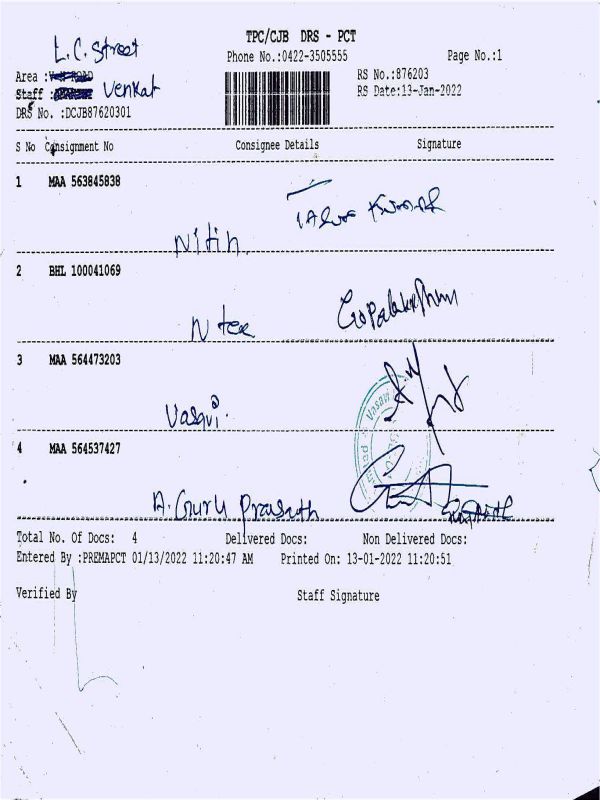 TPC/CJB DRS - PCT
L.C. Street
Phone No.:0422-3505555 Page No.:1
Area :
RS No.:876203
Staff : Venkat
RS Date:13-Jan-2022
DRS No. :DCJB87620301
S No Consignment No Consignee Details Signature
1 MAA 563845838
Kumar
Nitin
2 BHL 100041069
Gopalakrishnan
3 MAA 564473203
Vasavi
Vasavi.
4 MAA 564537427
A. Guru Prasath
Total No. Of Docs: 4 Delivered Docs: Non Delivered Docs:
Entered By :PREMAPCT 01/13/2022 11:20:47 AM Printed On: 13-01-2022 11:20:51
Verified By Staff Signature